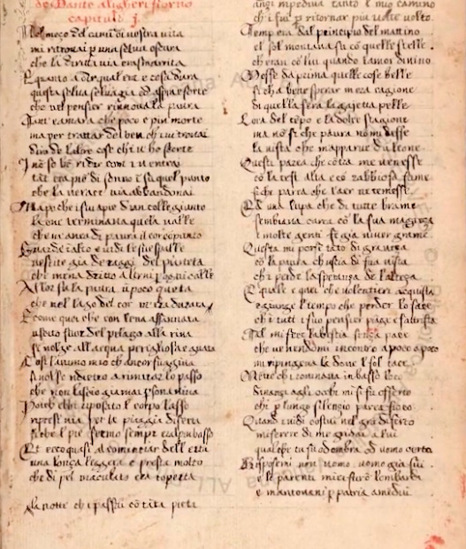 de Dante Aligheri fiorno
capitulo j.
Nel mezo del cami di nostra uita
mi ritrouai p una selua oscura
che la diritta uia era smarita
E quanto a dir qual era e cosa dura
questa selua seluagia ed aspra e forte
che nel pensier rinnoua la paura
Tant e amara che poco e piu morte
ma per trattar del ben ch i ui trouai
diro de laltre cose ch i u ho scorte
I no so be ridir com i u entrai
tat era pie di sonno i su quel punto
che la uerace uia abbandonai
Ma poi che fui apie d un colle giunto
la oue terminaua quela ualle
che m auea di paura il cor copunto
Guardai i alto e uidi le sue spalle
uestite gia de raggi del pianeta
che mena dritto altrui p ogni calle
Allor fu la paura u poco queta
che nel lago del cor m era durata
E come quei che con lena affannata
uscito fuor del pelago alla riua
si uolge all acqua perigliosa e guata
Cosi l animo mio ch ancor fuggiua
si uolse ndietro a rimirar lo passo
che non lascio gia mai psona uiua
Poi ch ebbi riposato il corpo lasso
ripresi uia per la piaggia diserta
si che l pie fermo sempre era l piu basso
Et ecco quasi al cominciar dell erta
una lonza leggera e presta molto
che di pel maculato era coperta
la notte ch i passai co tata pieta
anzi mpediua tanto l mio camino
ch i fui p ritornar piu uolte uolto
Temp era dal principio del mattino
el sol montaua su co quelle stelle
ch eran co lui quando l amor diuino
Mosse da prima quelle cose belle
si ch a bene sperar m era cagione
di quella fera la gaetta pelle
L ora del tepo e la dolce stagione
ma no si che paura no mi desse
la uista che m apparue d u leone
Questi parea che cotra me uenesse
co la test alta e co rabbiosa fame
si che parea che l aer ne temesse
Ed una lupa che di tutte brame
sembiaua carca co la sua magreza
e molte genti fe gia uiuer grame
Questa mi porse tato di graueza
co la paura ch uscia di sua uista
ch i perde la speranza de l alteza
E quale e quei che uolentieri acquista
e giunge l tempo che perder lo face
ch e i tutti i suo pensier piage e s attrista
Tal mi fece la bestia senza pace
che uenendomi incontro a poco a poco
mi ripingeua la doue l sol tace
Mentre ch i rouinaua in basso loco
dinanzi agli occhi mi si fu offerto
chi p lungo silenzio parea fioco
Quand i uidi costui nel gra diserto
miserere di me gridai a lui
qual che tu sii od ombra od uomo certo
Risposemi non uomo uomo gia fui
e li parenti miei furo lombardi
e mantouani p patria amedui